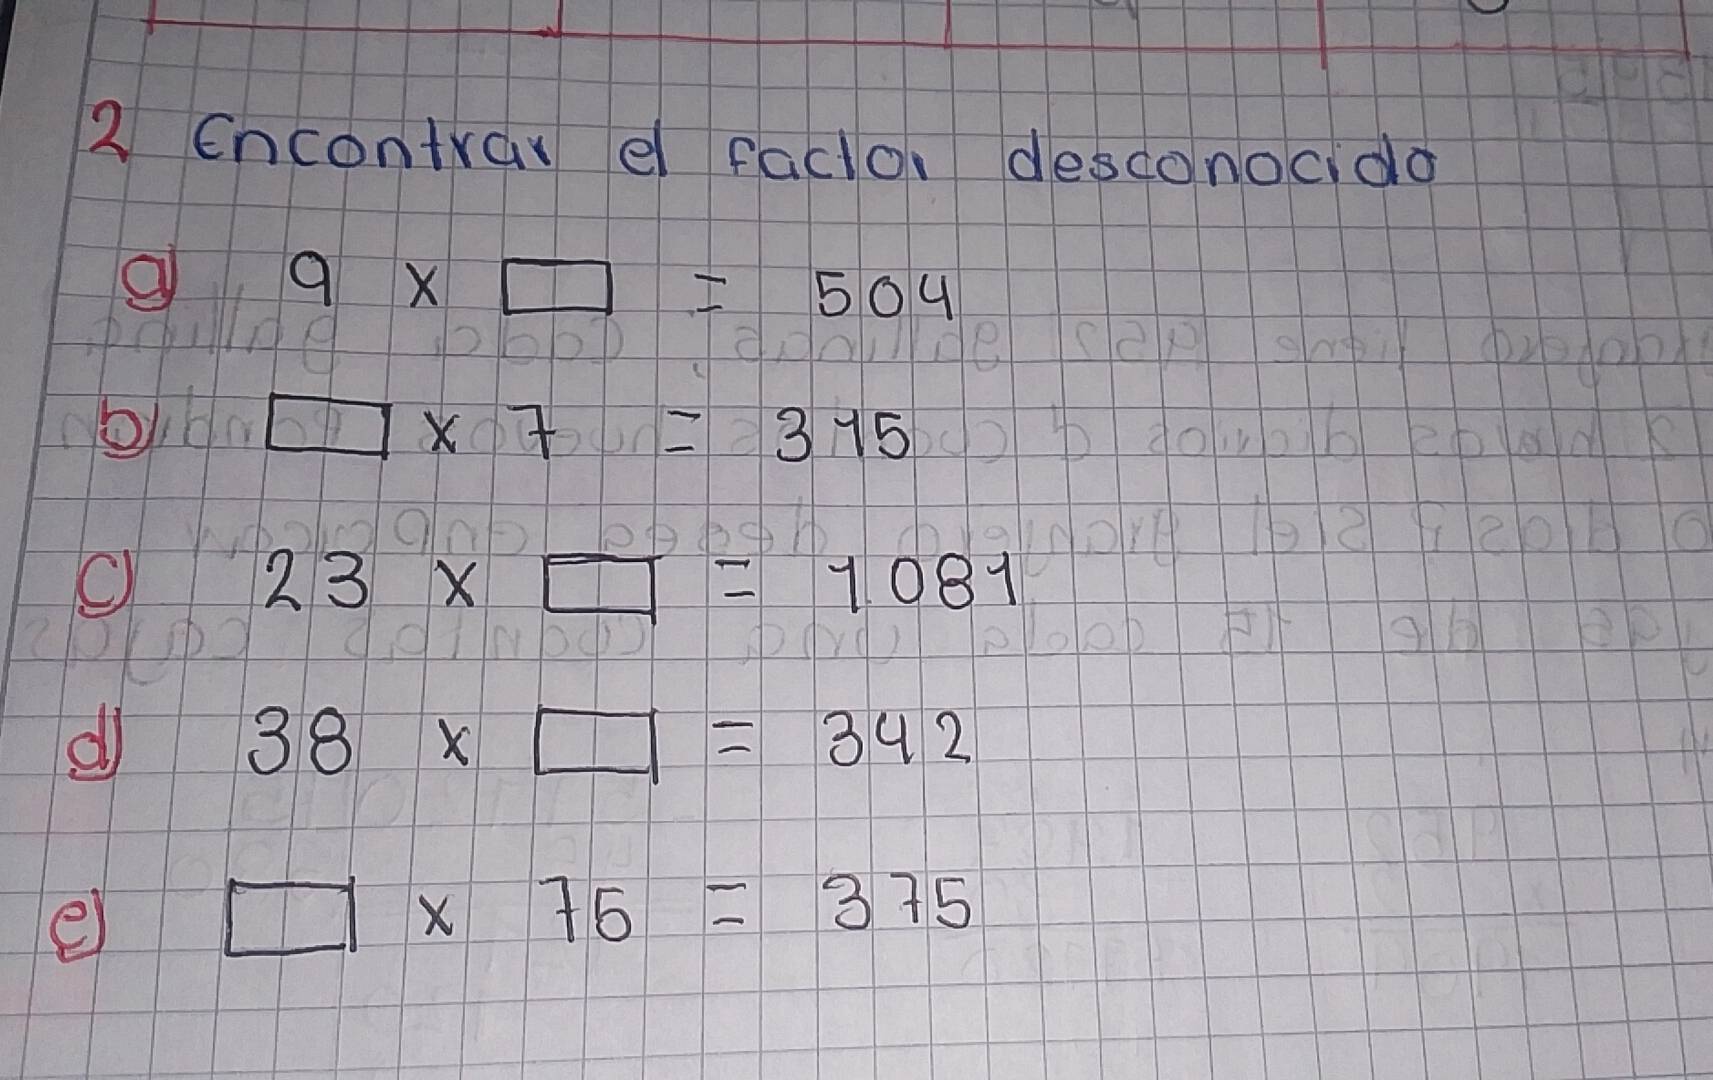 2 Encontrar el factor desconocido
a) 9 x □ = 504
b) □ x 7 = 315
c) 23 x □ = 1081
d) 38 x □ = 342
e) □ x 75 = 375